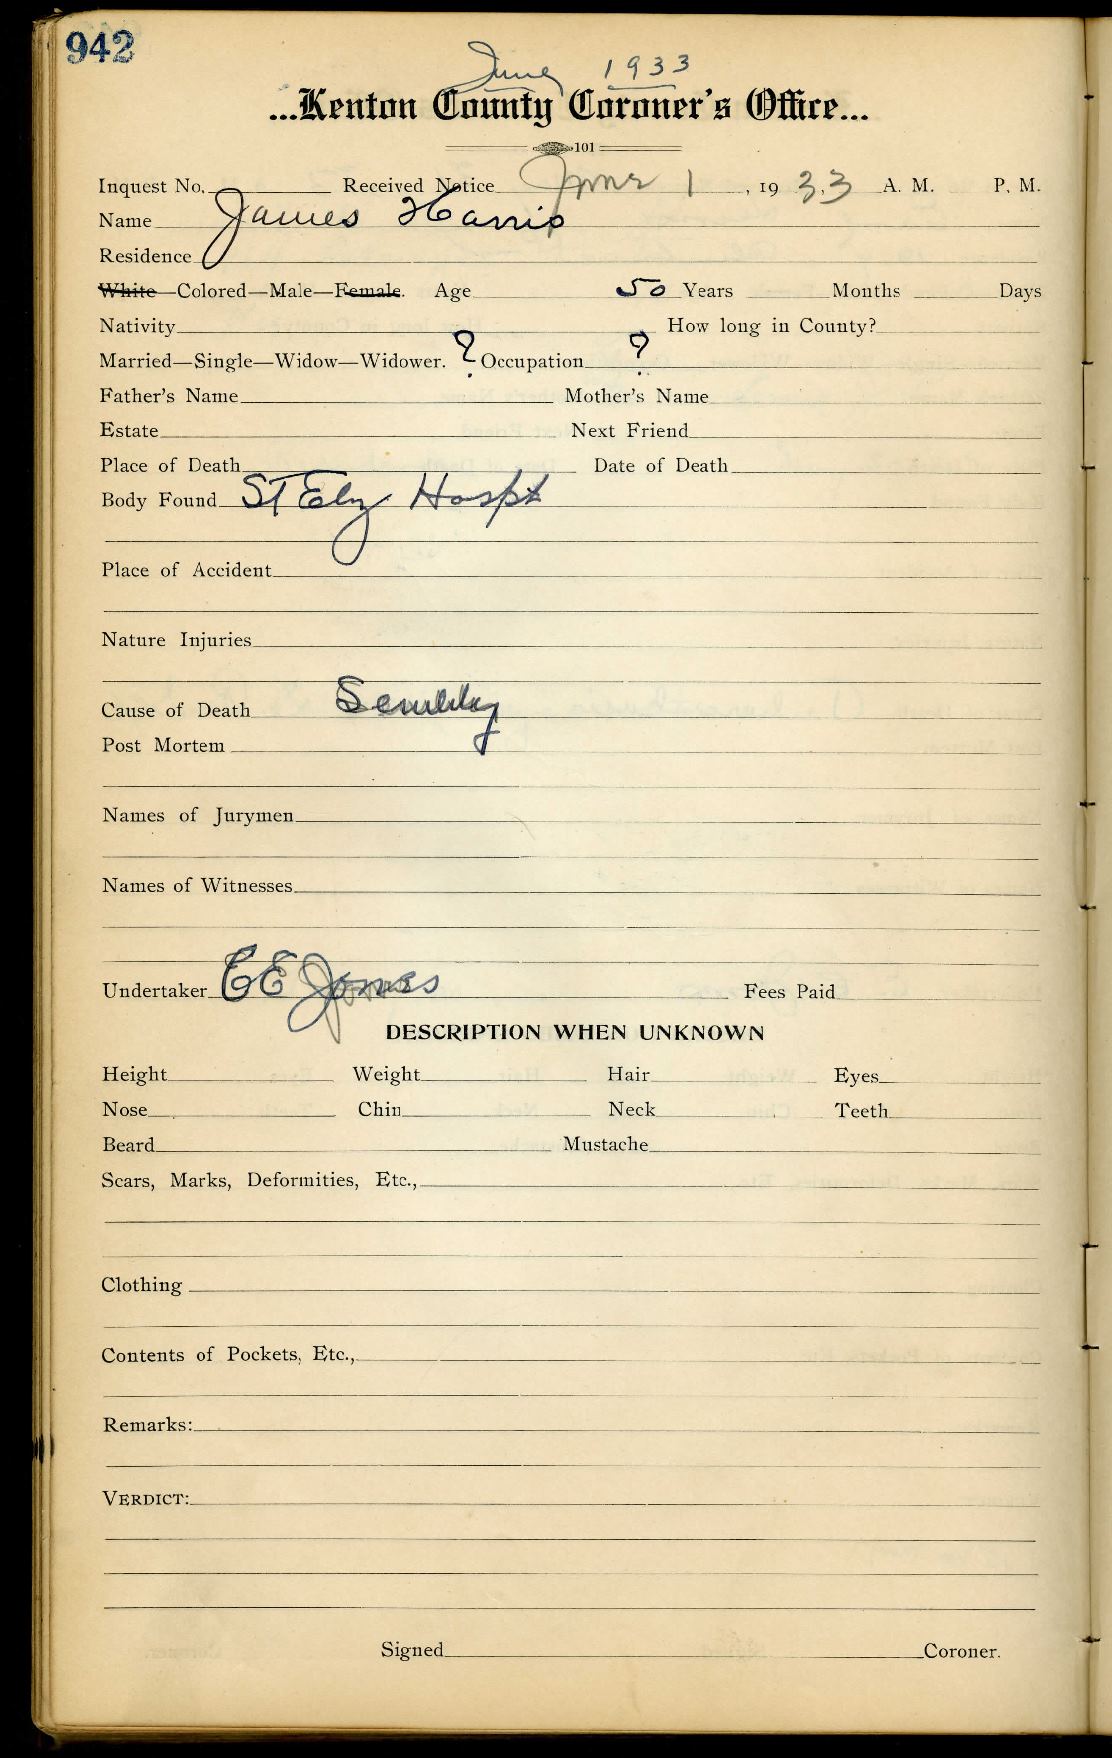 942
June 1933
...Kenton County Coroner's Office...
101
Inquest No. Received Notice June 1, 1933 A. M. P. M.
Name James Harris
Residence
White—Colored—Male—Female. Age 50 Years Months Days
Nativity How long in County?
Married—Single—Widow—Widower. ? Occupation ?
Father's Name Mother's Name
Estate Next Friend
Place of Death Date of Death
Body Found St Elz Hospt
Place of Accident
Nature Injuries
Cause of Death
Post Mortem
Names of Jurymen
Names of Witnesses
Undertaker CE Jones Fees Paid
DESCRIPTION WHEN UNKNOWN
Height Weight Hair Eyes
Nose Chin Neck Teeth
Beard Mustache
Scars, Marks, Deformities, Etc.,
Clothing
Contents of Pockets, Etc.,
Remarks:
VERDICT:
Signed Coroner.